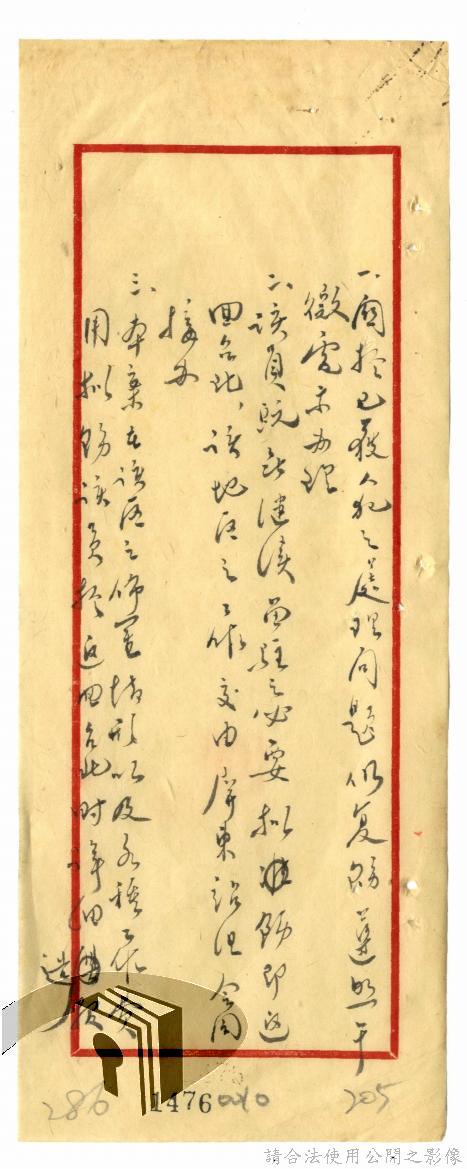 一、關於已獲人犯之處理問題仍复飭遵照午
微電示办理
二、該員既無继續留駐之必要拟准飭即返
回台北，該地區之工作交由屏東諮组会同
接办
三、本案在該區之佈置情形以及各種工作費
用拟飭該員於返回台北时详细
286
1476
205
請合法使用公開之影像